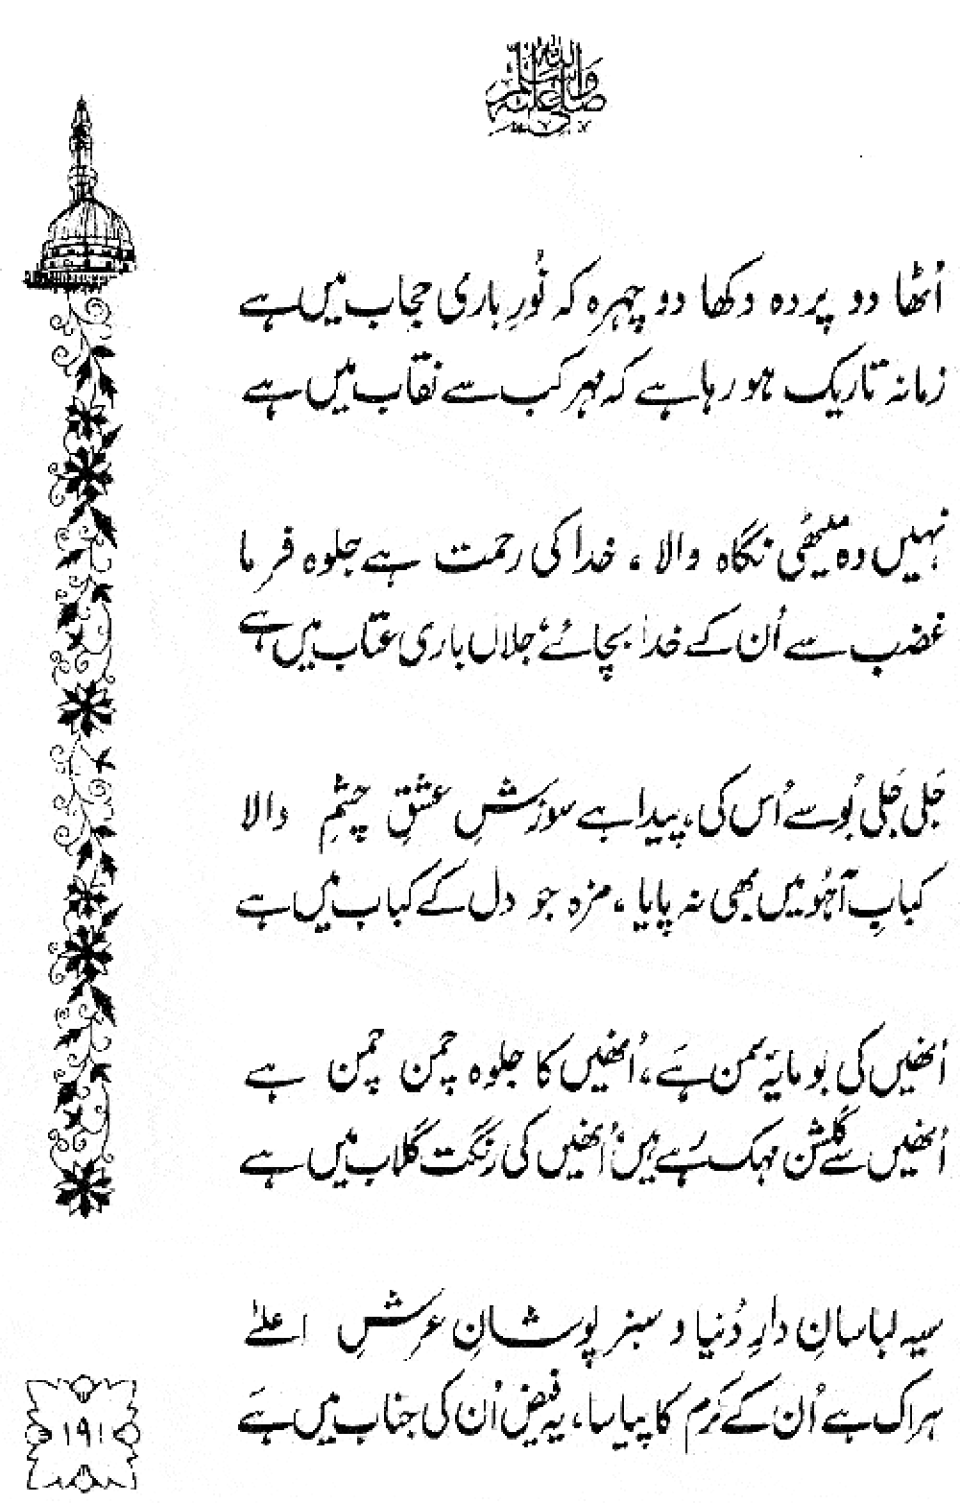 صلی اللہ علیہ وسلم
اُٹھا دو پردہ دکھا دو چہرہ کہ نُورِ باری حجاب میں ہے
زمانہ تاریک ہو رہا ہے کہ مہر کب سے نقاب میں ہے
نہیں وہ میٹھی نگاہ والا ، خدا کی رحمت ہے جلوہ فرما
غضب سے اُن کے خدا بچائے جلال باری عتاب میں ہے
جَلی جَلی بُو سے اُس کی، پیدا ہے سوزشِ عشقِ چشمِ والا
کبابِ آہُو میں بھی نہ پایا ، مزہ جو دل کے کباب میں ہے
اُنھیں کی بو مایۂ سمن ہے ، اُنھیں کا جلوہ چمن چمن ہے
اُنھیں سے گلشن مہک رہے ہیں اُنھیں کی رنگت گلاب میں ہے
سیہ لباسانِ دارِ دُنیا و سبز پوشانِ عرشِ اعلےٰ
ہر اک ہے اُن کے کَرم کا پیاسا، یہ فیض اُن کی جناب میں ہے
۱۹۱